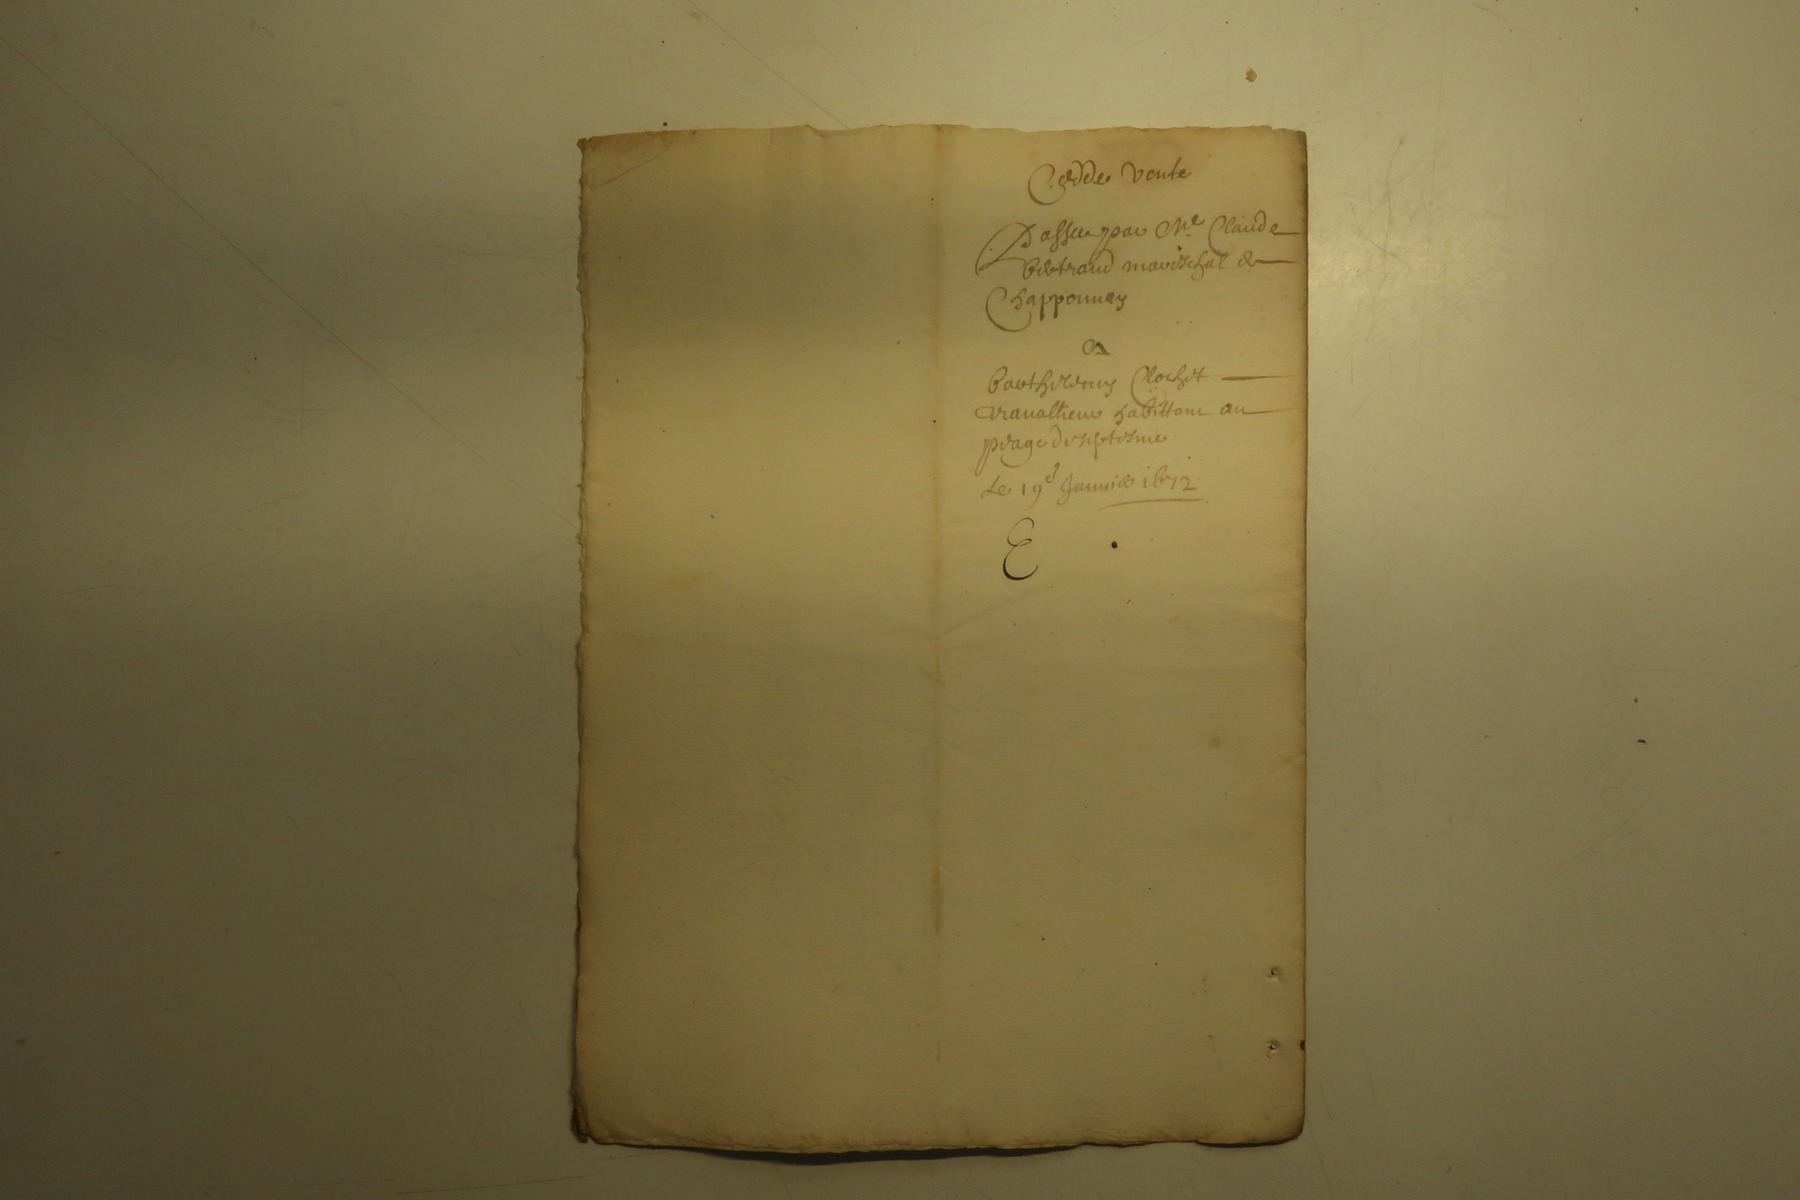 Cedde vente
Passee par Me Claude
bertrand mareschal de
Chapponnay
A
barthelemy Clochet
travallieur habittant au
peage doyptesme
Le 19e Janvier 1672
E